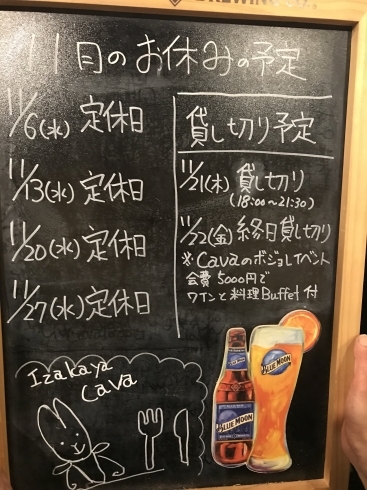 BREWING CO.
11月のお休みの予定
11/6(水) 定休日
11/13(水) 定休日
11/20(水) 定休日
11/27(水) 定休日
貸し切り予定
11/21(木) 貸し切り
(18:00〜21:30)
11/22(金) 終日貸し切り
※Cavaのボジョレイベント
会費 5000円で
ワインと料理Buffet付
Izakaya
Cava
BLUE MOON
BLUE MOON